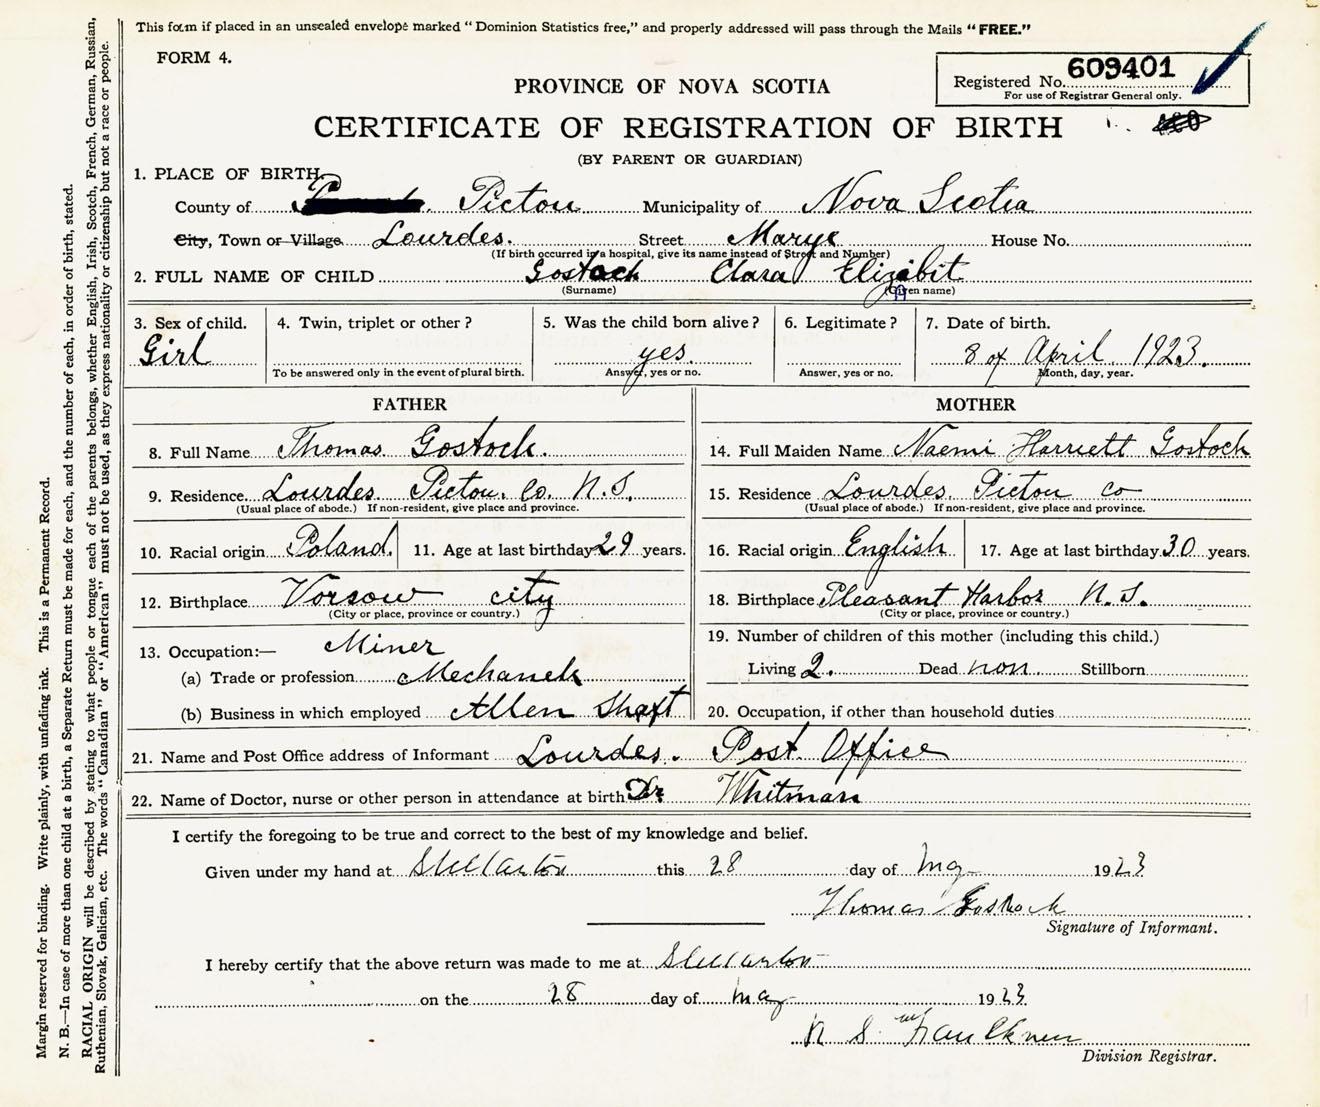 This form if placed in an unsealed envelope marked "Dominion Statistics free," and properly addressed will pass through the Mails "FREE."
FORM 4.
Registered No. 609401
For use of Registrar General only.
PROVINCE OF NOVA SCOTIA
CERTIFICATE OF REGISTRATION OF BIRTH
(BY PARENT OR GUARDIAN)
1. PLACE OF BIRTH
County of Pictou Municipality of Nova Scotia
City, Town or Village Lourdes. Street Marys House No.
(If birth occurred in a hospital, give its name instead of Street and Number)
2. FULL NAME OF CHILD Gostock Clara Elizabit
(Surname) (Given name)
3. Sex of child. 4. Twin, triplet or other? 5. Was the child born alive? 6. Legitimate? 7. Date of birth.
Girl yes. 8 of April 1923.
To be answered only in the event of plural birth. Answer, yes or no. Answer, yes or no. Month, day, year.
FATHER
8. Full Name Thomas Gostock.
9. Residence Lourdes Pictou. Co. N.S.
(Usual place of abode.) If non-resident, give place and province.
10. Racial origin Poland. 11. Age at last birthday 29 years.
12. Birthplace Vorsow city
(City or place, province or country.)
13. Occupation:— Miner
(a) Trade or profession Mechanek
(b) Business in which employed Allen Shaft
MOTHER
14. Full Maiden Name Naemi Harriett Gostock
15. Residence Lourdes. Pictou Co
(Usual place of abode.) If non-resident, give place and province.
16. Racial origin English 17. Age at last birthday 30 years.
18. Birthplace Pleasant Harbor N.S.
(City or place, province or country.)
19. Number of children of this mother (including this child.)
Living 2. Dead non Stillborn
20. Occupation, if other than household duties
21. Name and Post Office address of Informant Lourdes. Post Office
22. Name of Doctor, nurse or other person in attendance at birth Dr. Whitman
I certify the foregoing to be true and correct to the best of my knowledge and belief.
Given under my hand at Stellarton this 28 day of May 1923
Thomas Gostock
Signature of Informant.
I hereby certify that the above return was made to me at Stellarton
on the 28 day of May 1923
Faulkner
Division Registrar.
Margin reserved for binding. Write plainly, with unfading ink. This is a Permanent Record.
N. B.—In case of more than one child at a birth, a Separate Return must be made for each, and the number of each, in order of birth, stated.
RACIAL ORIGIN will be described by stating to what people or tongue each of the parents belongs, whether English, Irish, Scotch, French, German, Russian,
Ruthenian, Slovak, Galician, etc. The words "Canadian" or "American" must not be used, as they express nationality or citizenship but not a race or people.